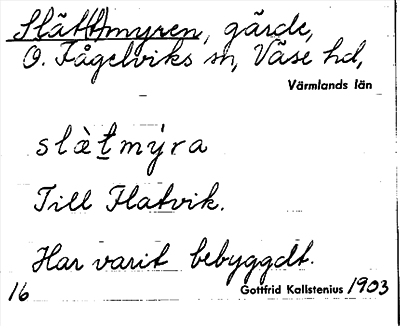 Slät(t)myren, gärde,
Ö. Fågelviks sn, Väse hd,
Värmlands län
slàt̠mýra
Till Flatvik.
Har varit bebyggdt.
16 Gottfrid Kallstenius 1903